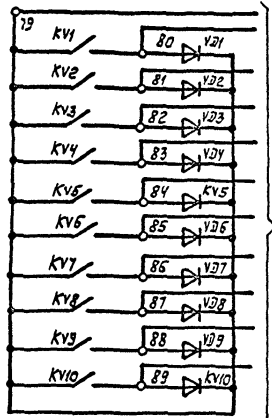 79
KV1 80 VD1
KV2 81 VD2
KV3 82 VD3
KV4 83 VD4
KV5 84 KV5
KV6 85 VD6
KV7 86 VD7
KV8 87 VD8
KV9 88 VD9
KV10 89 KV10